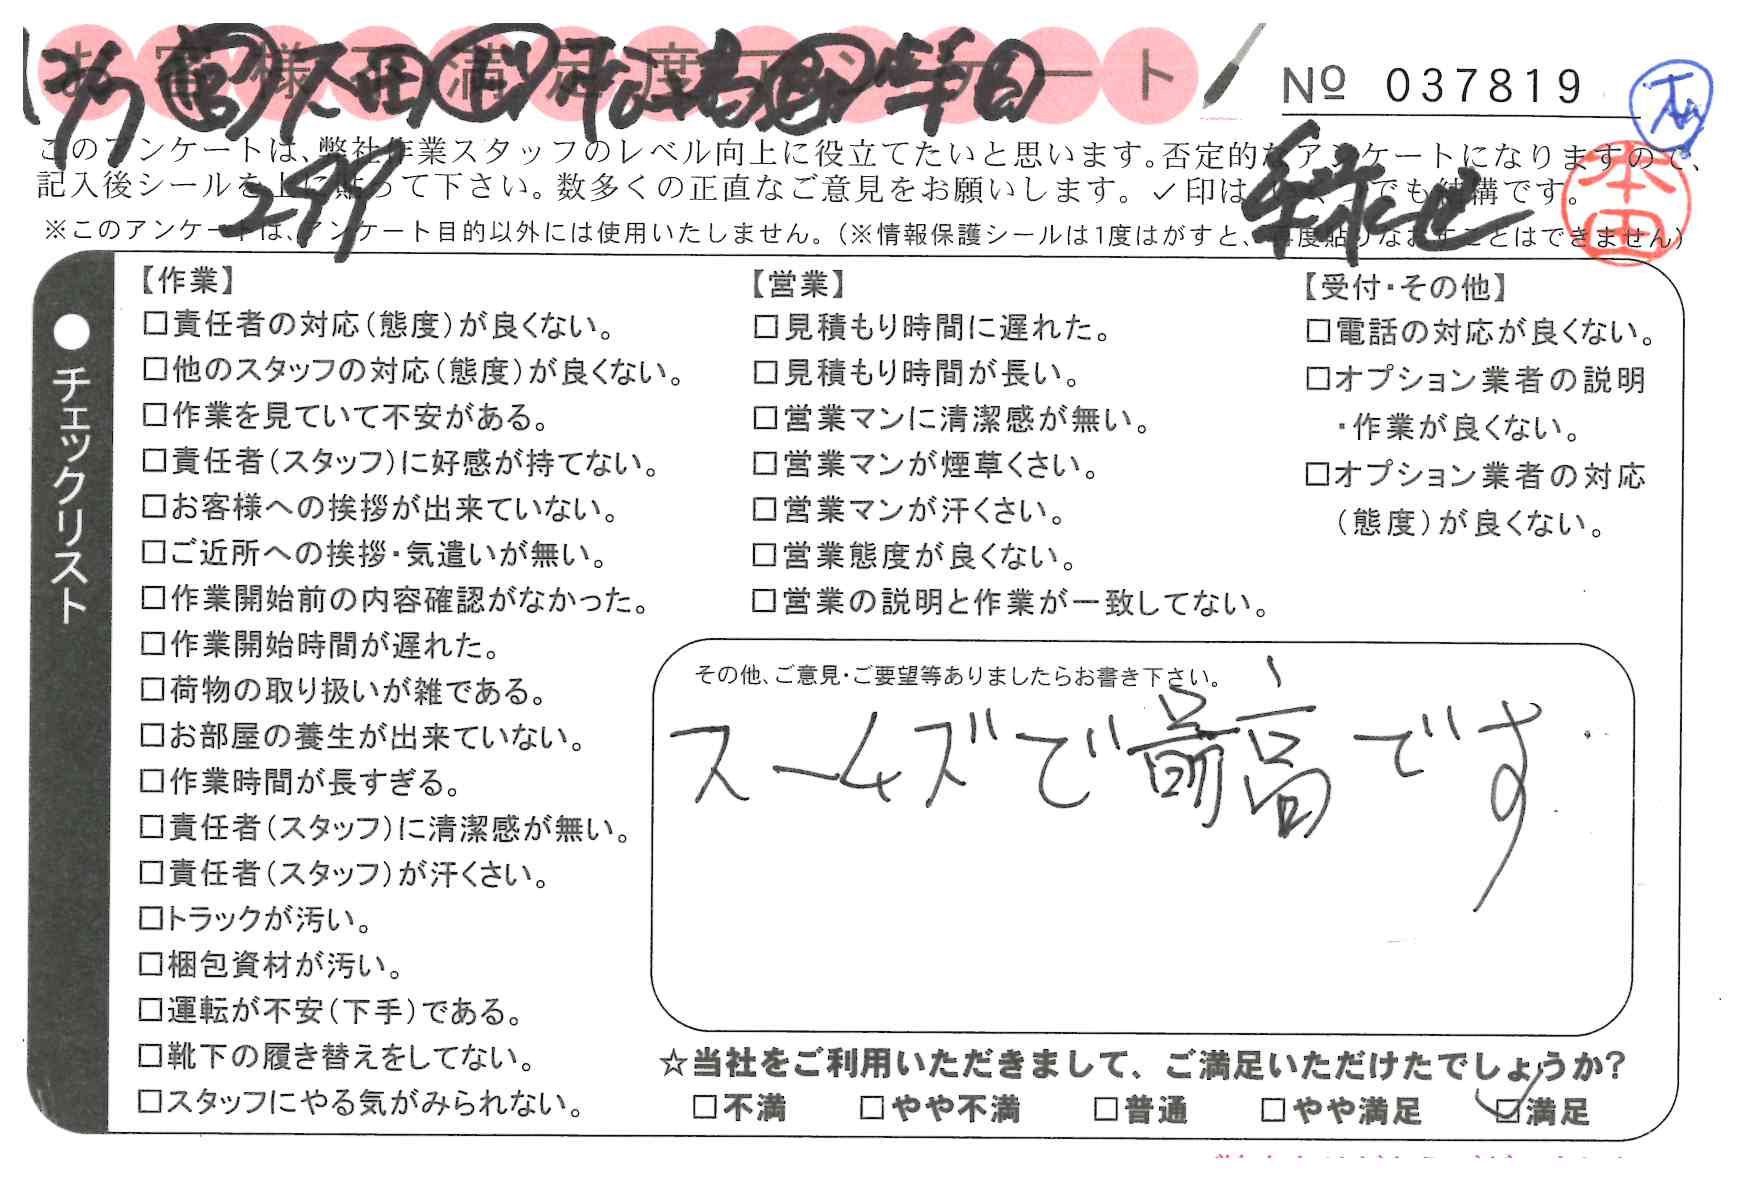 お客様不満足度アンケート
№ 037819
このアンケートは、弊社作業スタッフのレベル向上に役立てたいと思います。否定的なアンケートになりますので、
記入後シールを上に貼って下さい。数多くの正直なご意見をお願いします。✓印はいくつでも結構です。
※このアンケートは、アンケート目的以外には使用いたしません。(※情報保護シールは1度はがすと、再度貼りなおすことはできません)
299
本田
●チェックリスト
【作業】
□責任者の対応(態度)が良くない。
□他のスタッフの対応(態度)が良くない。
□作業を見ていて不安がある。
□責任者(スタッフ)に好感が持てない。
□お客様への挨拶が出来ていない。
□ご近所への挨拶・気遣いが無い。
□作業開始前の内容確認がなかった。
□作業開始時間が遅れた。
□荷物の取り扱いが雑である。
□お部屋の養生が出来ていない。
□作業時間が長すぎる。
□責任者(スタッフ)に清潔感が無い。
□責任者(スタッフ)が汗くさい。
□トラックが汚い。
□梱包資材が汚い。
□運転が不安(下手)である。
□靴下の履き替えをしてない。
□スタッフにやる気がみられない。
【営業】
□見積もり時間に遅れた。
□見積もり時間が長い。
□営業マンに清潔感が無い。
□営業マンが煙草くさい。
□営業マンが汗くさい。
□営業態度が良くない。
□営業の説明と作業が一致してない。
【受付・その他】
□電話の対応が良くない。
□オプション業者の説明
・作業が良くない。
□オプション業者の対応
(態度)が良くない。
その他、ご意見・ご要望等ありましたらお書き下さい。
スームズで最高です
☆当社をご利用いただきまして、ご満足いただけたでしょうか?
□不満 □やや不満 □普通 □やや満足 ☑満足